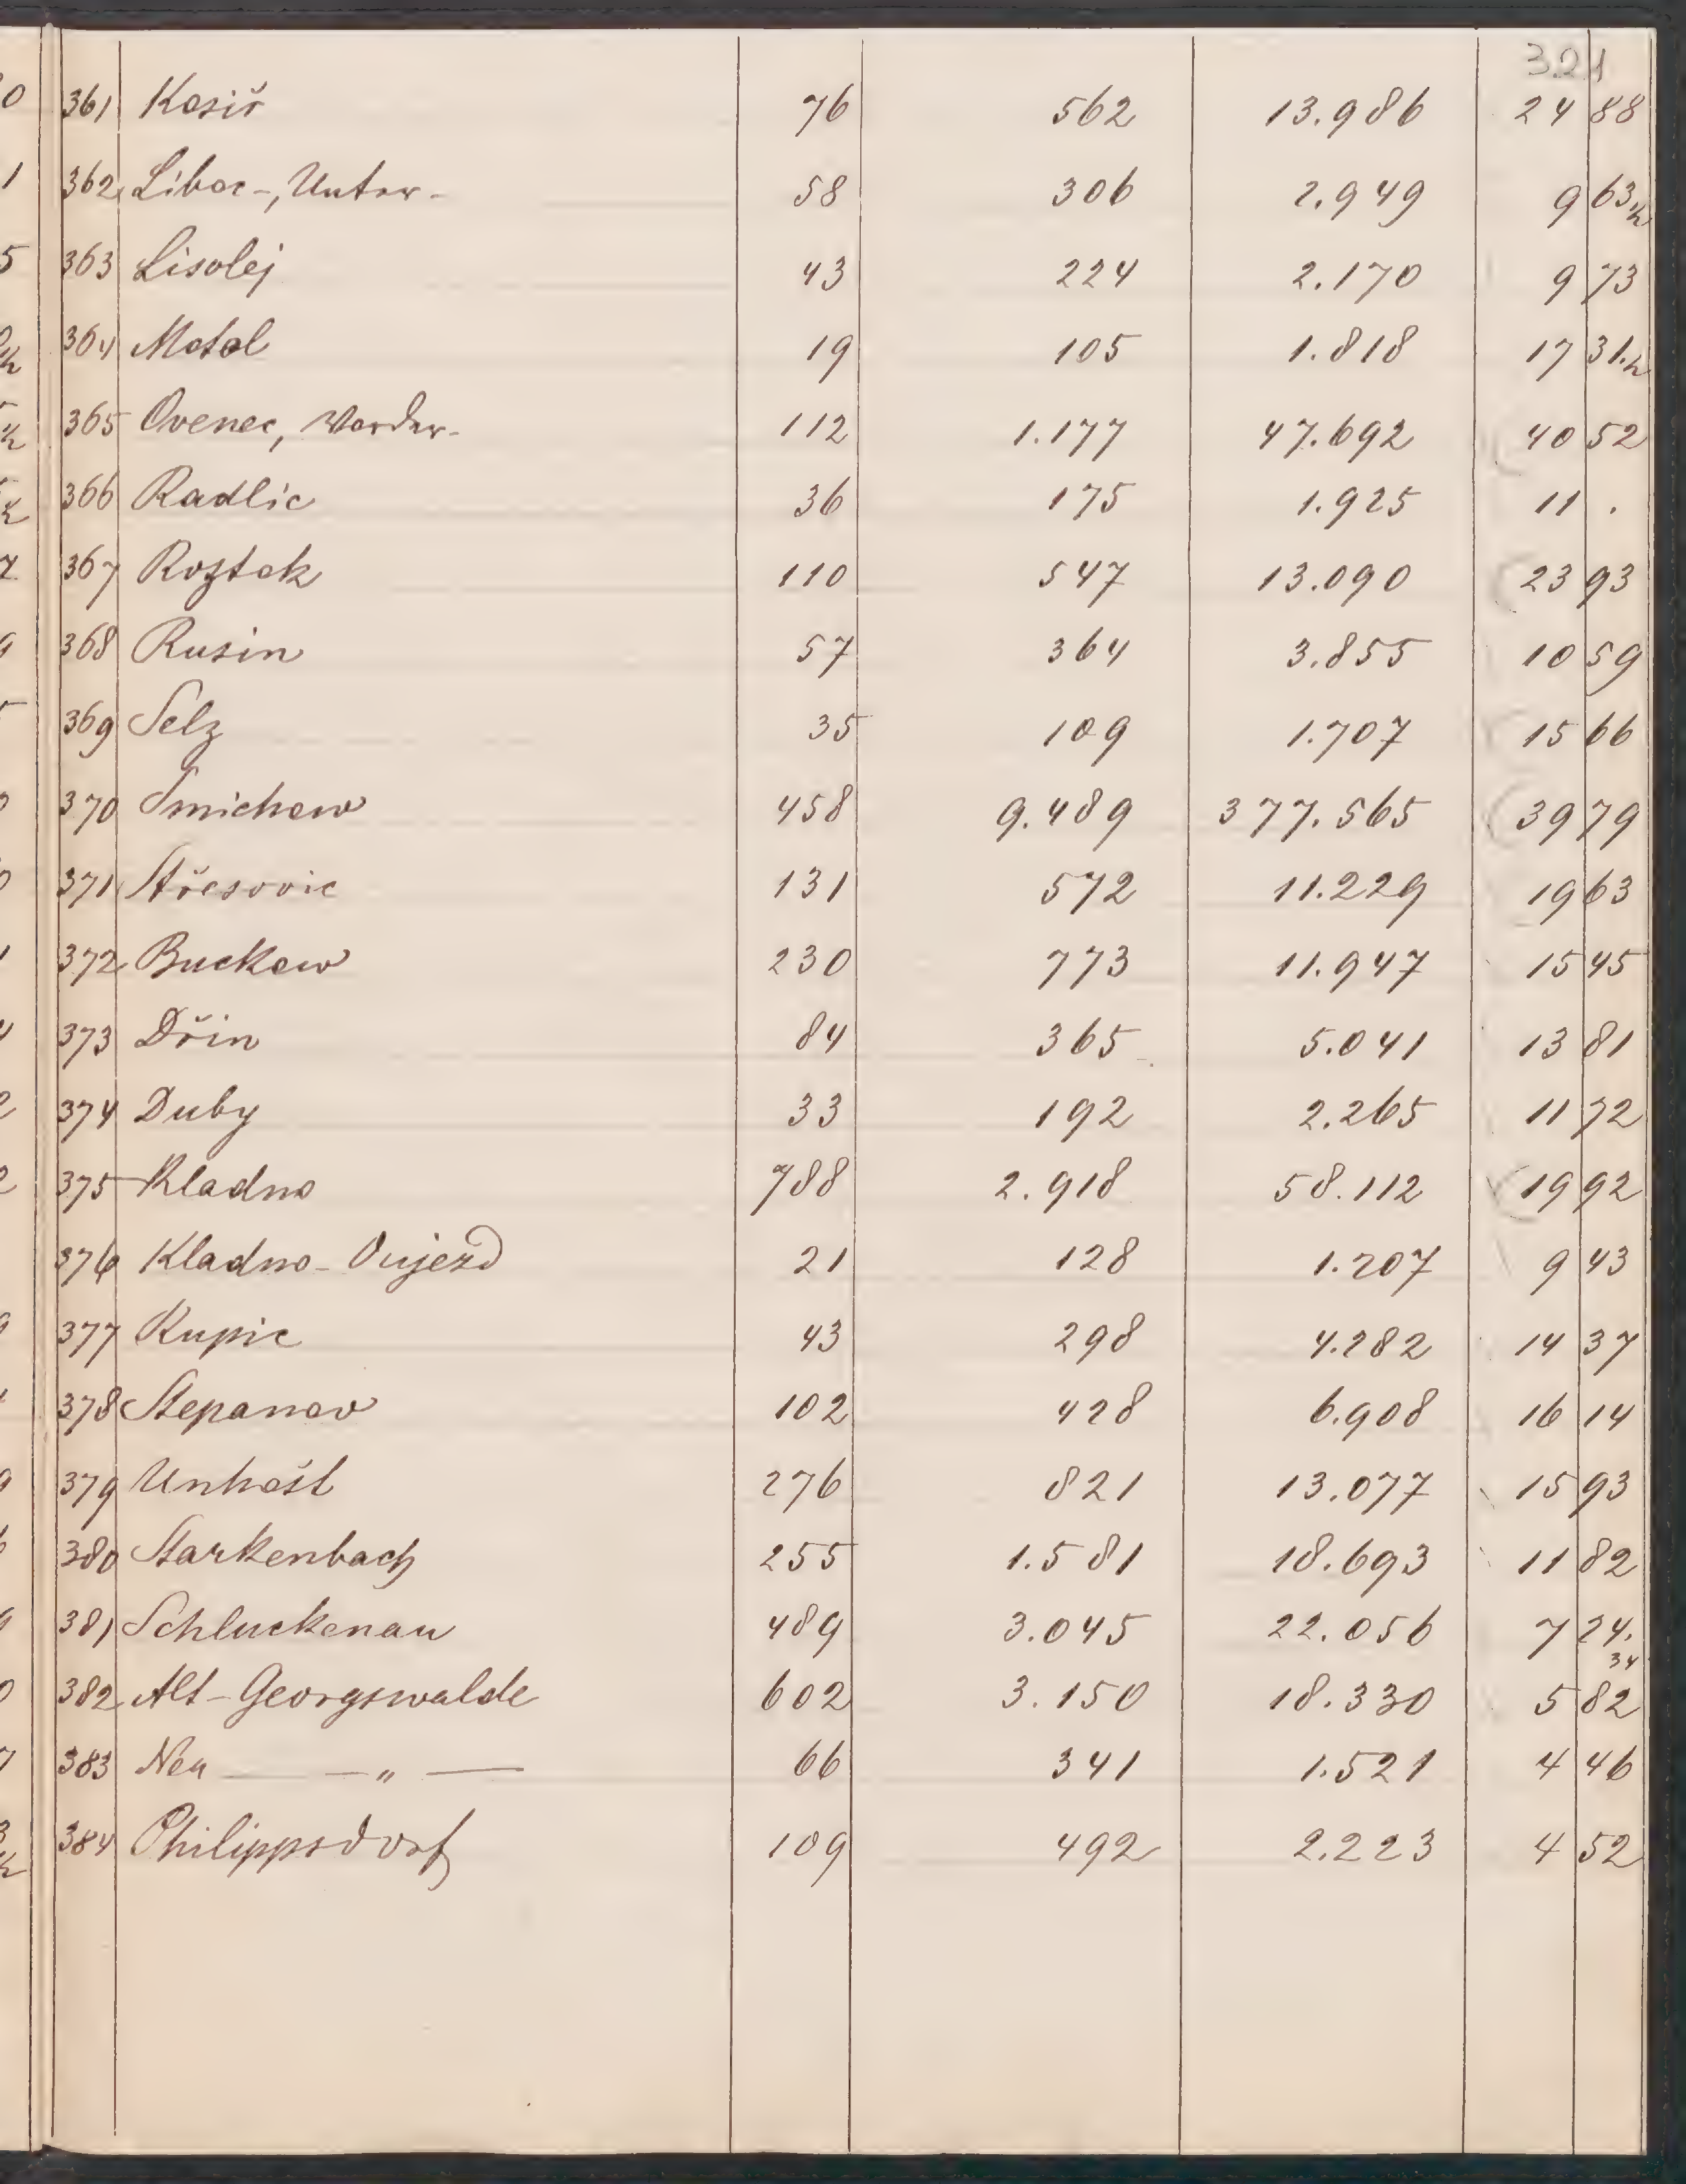 321
361 Kosiř 76 562 13.986 24 88
362 Liboc-, Unter- 58 306 2.949 9 63 1/2
363 Lisolej 43 224 2.170 9 73
364 Motol 19 105 1.818 17 31 1/2
365 Ovenec, Vorder- 112 1.177 47.692 40 52
366 Radlic 36 175 1.925 11 .
367 Roztok 110 547 13.090 23 93
368 Rusin 57 364 3.855 10 59
369 Selz 35 109 1.707 15 66
370 Smichow 458 9.489 377.565 39 79
371 Střesovic 131 572 11.229 19 63
372 Buckow 230 773 11.947 15 45
373 Dřin 84 365 5.041 13 81
374 Duby 33 192 2.265 11 72
375 Kladno 788 2.918 58.112 19 92
376 Kladno-Oujezd 21 128 1.207 9 43
377 Rupic 43 298 4.282 14 37
378 Stepanov 102 428 6.908 16 14
379 Unhošt 276 821 13.077 15 93
380 Starkenbach 255 1.581 18.693 11 82
381 Schluckenau 489 3.045 22.056 7 24.
34
382 Alt-Georgswalde 602 3.150 18.330 5 82
383 Neu — " — 66 341 1.521 4 46
384 Philippsdorf 109 492 2.223 4 52